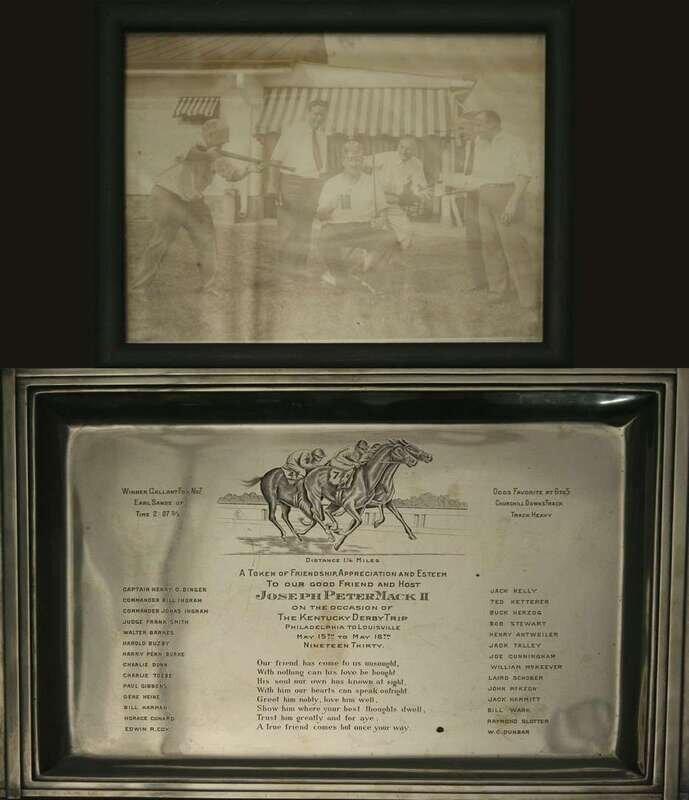 Winner Gallant Fox No7
Earl Sande up
Time 2:07 3/5
Odds Favorite at 6to5
Churchill Downs Track
Track Heavy
7
Distance 1¼ Miles
A Token of Friendship, Appreciation and Esteem
To our good Friend and Host
Joseph Peter Mack II
on the occasion of
The Kentucky Derby Trip
Philadelphia to Louisville
May 15TH to May 18TH
Nineteen Thirty.
Our friend has come to us unsought,
With nothing can his love be bought
His soul our own has known at sight,
With him our hearts can speak outright
Greet him nobly, love him well,
Show him where your best thoughts dwell,
Trust him greatly and for aye.
A true friend comes but once your way.
Captain Henry C. Dinger
Commander Bill Ingram
Commander Johas Ingram
Judge Frank Smith
Walter Barkes
Harold Buzby
Harry Penn Burke
Charlie Dunn
Charlie
Paul Gibbons
Gene Heine
Bill
Horace Conard
Edwin R.
Jack Kelly
Ted Ketterer
Buck Herzog
Bob Stewart
Henry Antweiler
Jack Talley
Joe Cunningham
William McKeever
Laird Schober
John
Jack Hammitt
Bill Wark
Raymond Slotter
W.C. Dunbar